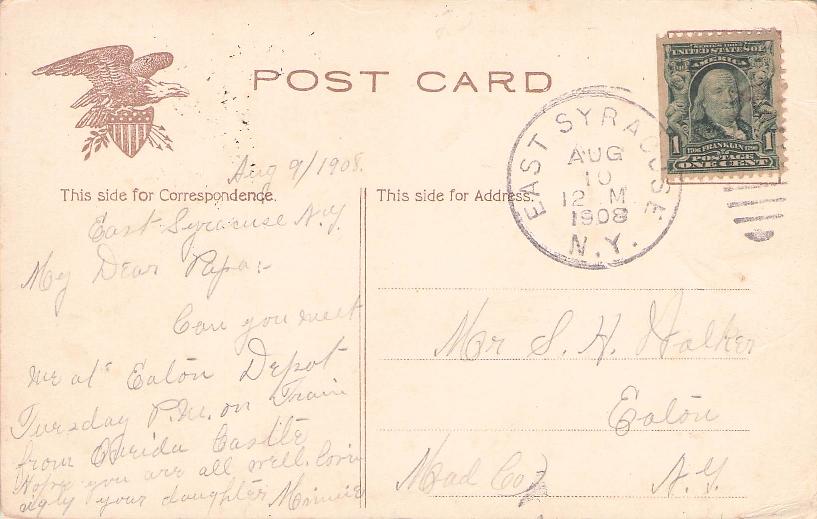 POST CARD
SERIES 1902
UNITED STATES OF
AMERICA
1 1706 FRANKLIN 1790 1
POSTAGE
ONE CENT
EAST SYRACUSE
AUG
10
12 M
1908
N.Y.
This side for Correspondence.
Aug 9/1908.
East Syracuse N.Y.
My Dear Papa:-
Can you meet
me at Eaton Depot
Tuesday P.M. on Train
from Oneida Castle
Hope you are all well. Lovin
ngly your daughter Minnie
This side for Address.
Mr S. H. Walker
Eaton
Mad Co
N.Y.